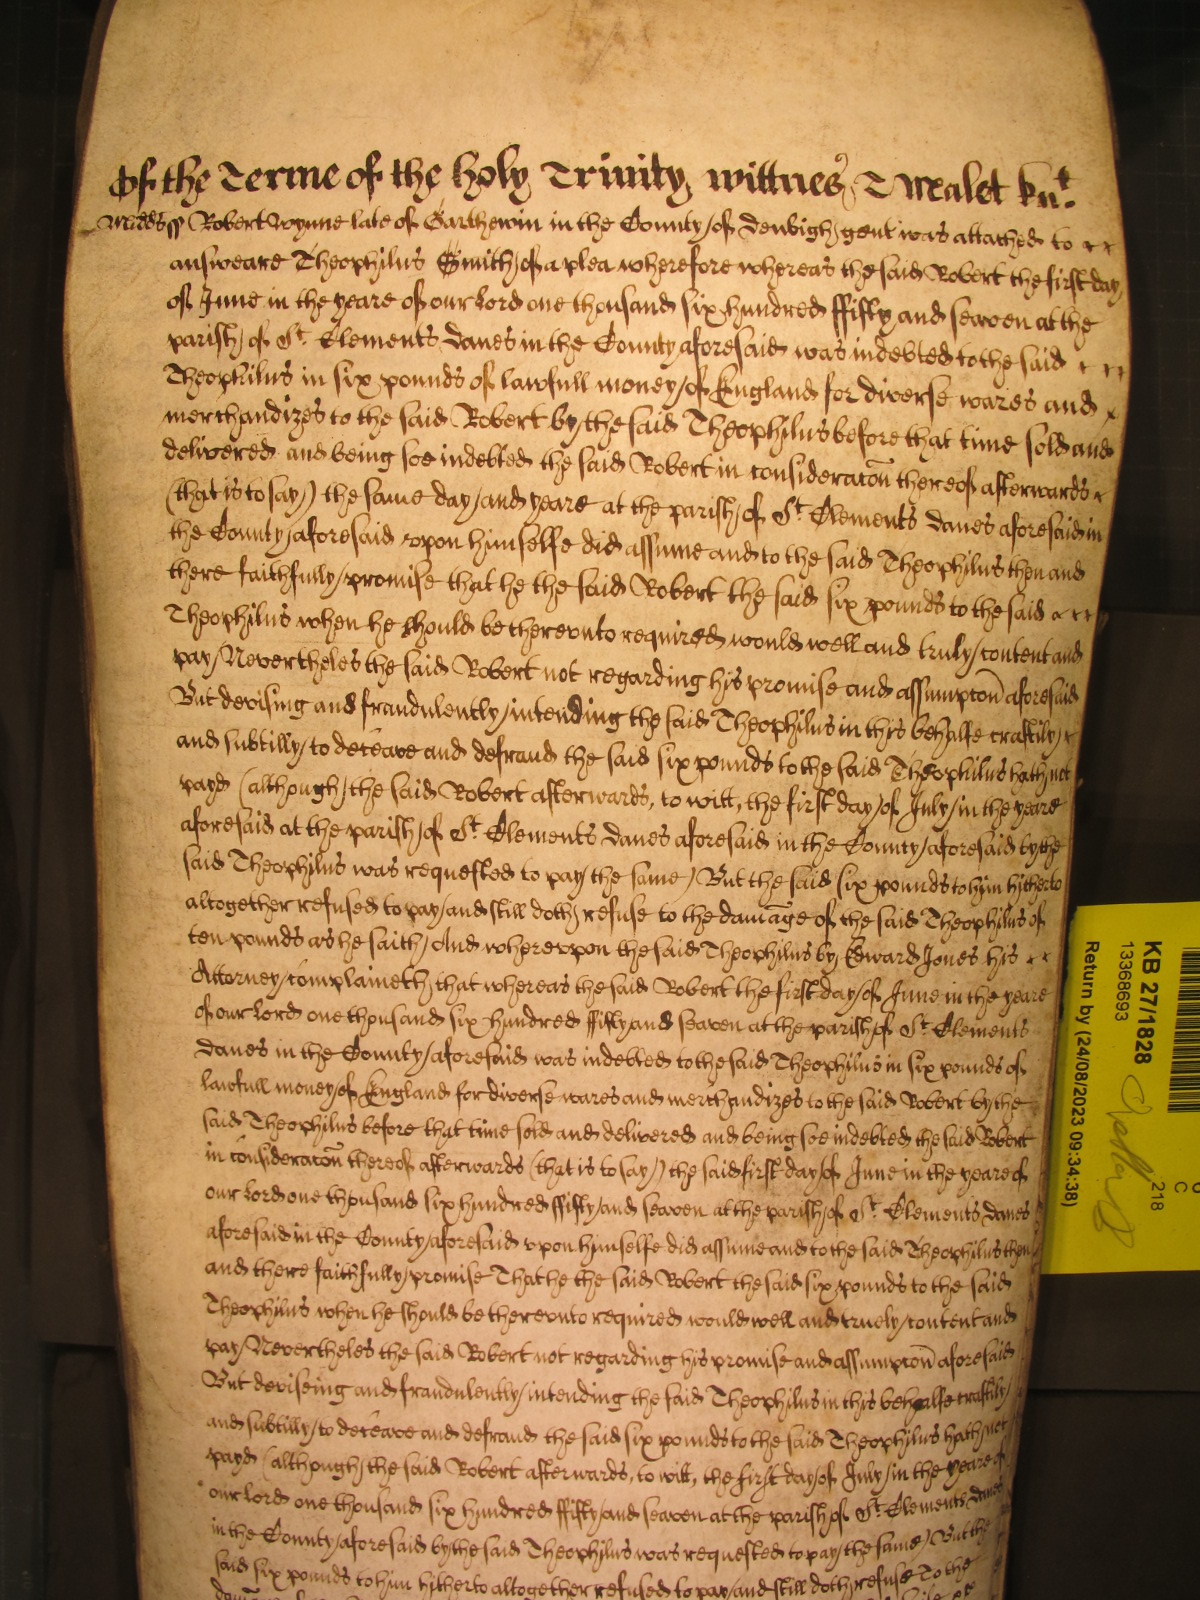 Of the Terme of the holy Trinity, wittnes T Malet knt.
Midds ss Robert Wynne late of Garthewin in the County of Denbigh gent was attached to
answeare Theophilus Smith of a plea wherefore whereas the said Robert the first day
of June in the yeare of our Lord one thousand six hundred ffifty and seaven at the
parish of St. Clements Danes in the County aforesaid was indebted to the said
Theophilus in six pounds of lawfull money of England for diverse wares and
merchandizes to the said Robert by the said Theophilus before that time sold and
delivered and being soe indebted the said Robert in consideracon thereof afterwards
(that is to say) the same day and yeare at the parish of St. Clements Danes aforesaid in
the County aforesaid vpon himselfe did assume and to the said Theophilus then and
there faithfully promise that he the said Robert the said six pounds to the said
Theophilus when he should be therevnto required would well and truly content and
pay Nevertheles the said Robert not regarding his promise and assumpcon aforesaid
But devising and fraudulently intending the said Theophilus in this behalfe craftily
and subtilly to deceave and defraud the said six pounds to the said Theophilus hath not
payd (although the said Robert afterwards, to witt, the first day of July in the yeare
aforesaid at the parish of St. Clements Danes aforesaid in the County aforesaid by the
said Theophilus was requested to pay the same) But the said six pounds to him hitherto
altogether refused to pay and still doth refuse to the damage of the said Theophilus of
ten pounds as he saith And wherevpon the said Theophilus by Edward Jones his
Attorney complaineth, that whereas the said Robert the first day of June in the yeare
of our Lord one thousand six hundred ffifty and seaven at the parish of St. Clements
Danes in the County aforesaid was indebted to the said Theophilus in six pounds of
lawfull money of England for diverse wares and merchandizes to the said Robert by the
said Theophilus before that time sold and delivered and being soe indebted the said Robert
in consideracon thereof afterwards (that is to say) the said first day of June in the yeare of
our Lord one thousand six hundred ffifty and seaven at the parish of St. Clements Danes
aforesaid in the County aforesaid vpon himselfe did assume and to the said Theophilus then
and there faithfully promise That he the said Robert the said six pounds to the said
Theophilus when he should be therevnto required would well and truely content and
pay Nevertheles the said Robert not regarding his promise and assumpcon aforesaid
But deviseing and fraudulently intending the said Theophilus in this behalfe craftily
and subtilly to deceave and defraud the said six pounds to the said Theophilus hath not
payd (although the said Robert afterwards, to witt, the first day of July in the yeare of
our Lord one thousand six hundred ffifty and seaven at the parish of St. Clements Danes
in the County aforesaid by the said Theophilus was requested to pay the same) But the
said six pounds to him hitherto altogether refused to pay and still doth refuse To the
KB 27/1828
13368693
Return by (24/08/2023 09:34:38)
218
C